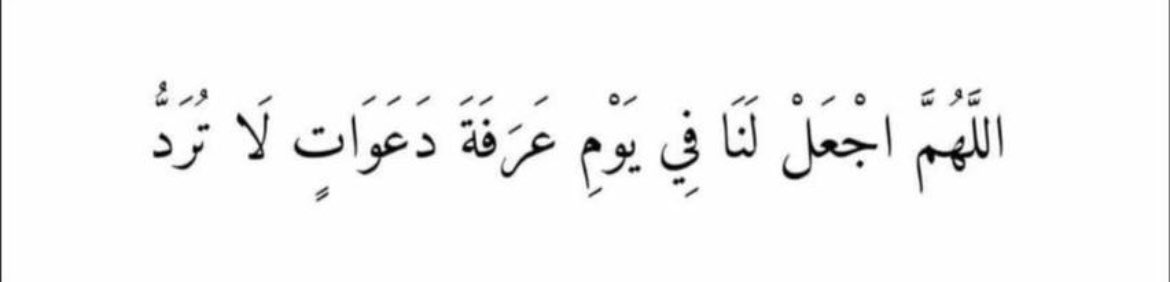 اللَّهُمَّ اجْعَلْ لَنَا فِي يَوْمِ عَرَفَةَ دَعَوَاتٍ لَا تُرَدُّ